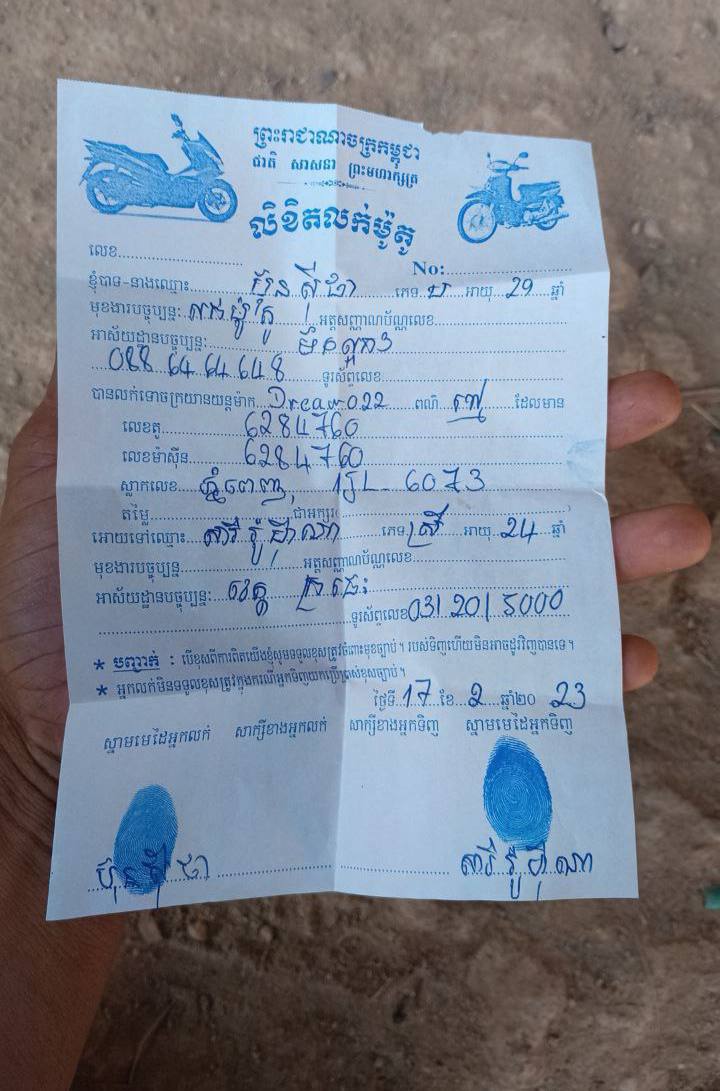 ព្រះរាជាណាចក្រកម្ពុជា
ជាតិ សាសនា ព្រះមហាក្សត្រ
លិខិតលក់ម៉ូតូ
លេខ
No:
ខ្ញុំបាទ-នាងឈ្មោះ ប៊ុន ស៊ីផា ភេទ ប អាយុ 29 ឆ្នាំ
មុខងារបច្ចុប្បន្ន: អត្តសញ្ញាណប័ណ្ណលេខ
អាស័យដ្ឋានបច្ចុប្បន្ន:
088 64 64 648 ទូរស័ព្ទលេខ
បានលក់ទោចក្រយានយន្តម៉ាក Dream 022 ពណ៌ ខ្មៅ ដែលមាន
លេខតួ 6284760
លេខម៉ាស៊ីន 6284760
ស្លាកលេខ ភ្នំពេញ, 1JL- 6073
តម្លៃ ជាអក្សរ
អោយទៅឈ្មោះ ភេទ ស្រី អាយុ 24 ឆ្នាំ
មុខងារបច្ចុប្បន្ន អត្តសញ្ញាណប័ណ្ណលេខ
អាស័យដ្ឋានបច្ចុប្បន្ន: ខេត្ត ក្រចេះ
ទូរស័ព្ទលេខ 031 201 5000
* បញ្ជាក់ : បើខុសពីការពិតយើងខ្ញុំសូមទទួលខុសត្រូវចំពោះមុខច្បាប់។ របស់ទិញហើយមិនអាចដូរវិញបានទេ។
* អ្នកលក់មិនទទួលខុសត្រូវក្នុងករណីអ្នកទិញយកប្រើប្រាស់ខុសច្បាប់។
ថ្ងៃទី 17 ខែ 2 ឆ្នាំ២០ 23
ស្នាមមេដៃអ្នកលក់ សាក្សីខាងអ្នកលក់ សាក្សីខាងអ្នកទិញ ស្នាមមេដៃអ្នកទិញ
ប៊ុន ស៊ីផា